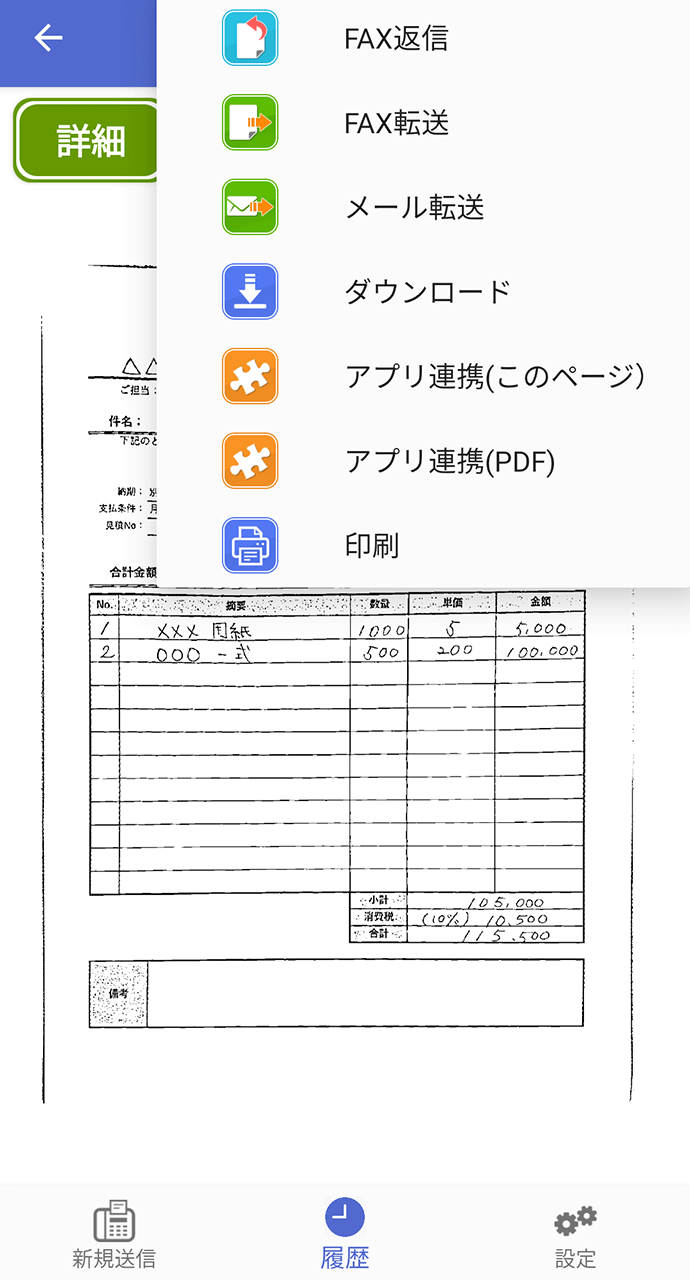 FAX返信
FAX転送
メール転送
ダウンロード
アプリ連携(このページ)
アプリ連携(PDF)
印刷
詳細
△△
ご担当:
件名:
下記のと
納期:
支払条件: 月
見積No:
合計金額
No. 摘要 数量 単価 金額
1 ××× 用紙 1000 5 5,000
2 ○○○ 一式 500 200 100,000
小計 105,000
消費税 (10%) 10,500
合計 115,500
備考
新規送信
履歴
設定